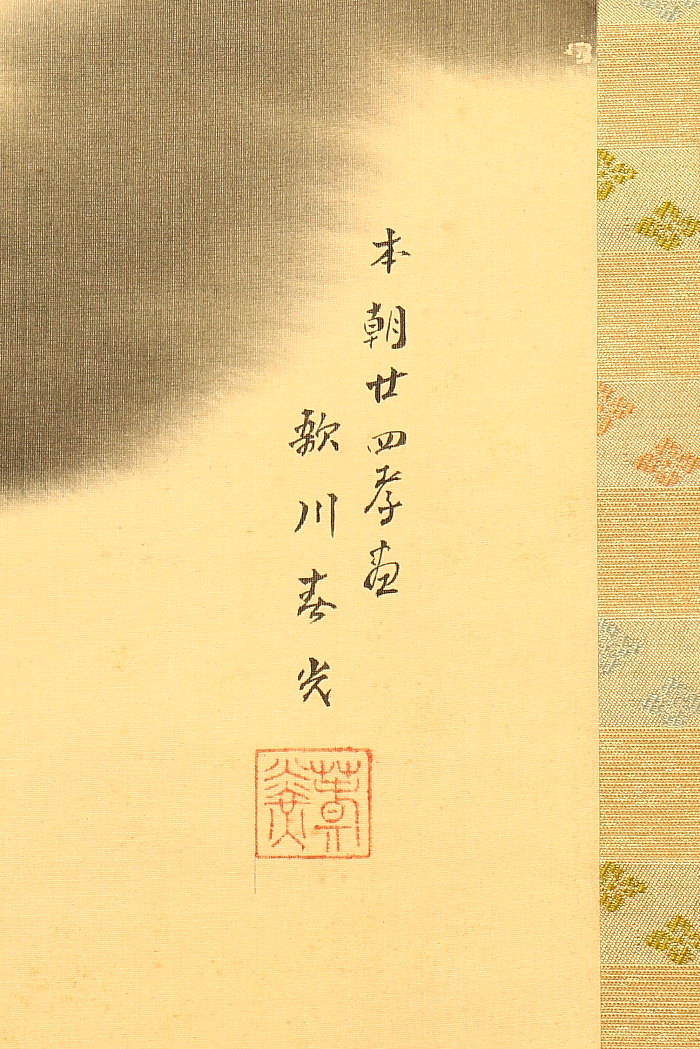 本朝廿四孝画
歌川春光